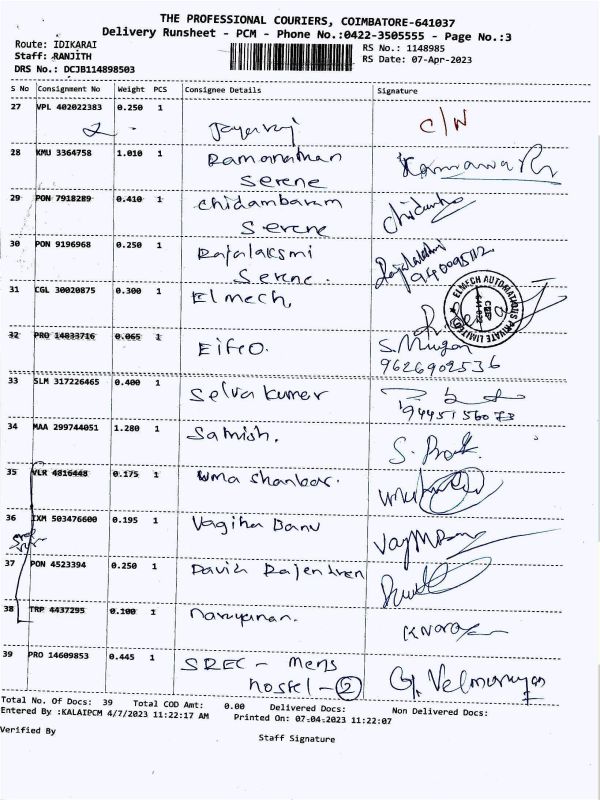 THE PROFESSIONAL COURIERS, COIMBATORE-641037
Delivery Runsheet - PCM - Phone No.:0422-3505555 - Page No.:3
Route: IDIKARAI
RS No.: 1148985
Staff: RANJITH
RS Date: 07-Apr-2023
DRS No.: DCJB114898503
S No Consignment No Weight PCS Consignee Details Signature
27 VPL 402022383 0.250 1
Jayaraj C/N
28 KMU 3364758 1.010 1 Ramanathan
Serene
29 PON 7918289 0.410 1 Chidambaram
Serene
30 PON 9196968 0.250 1 Rajalaksmi
Serene.
31 CGL 30020875 0.300 1 Elmech,
ELMECH AUTOMATIONS PRIVATE LIMITED
32 PRO 14033716 0.065 1 Eifeo. S. Murgan
9626902536
33 SLM 317226465 0.400 1 Selva kumar
34 MAA 299744051 1.280 1 Sathish.
35 VLR 4816448 0.175 1 uma Shankar.
36 IXM 503476600 0.195 1 Vagiha Banu
37 PON 4523394 0.250 1 David Rajendren
38 TRP 4437295 0.100 1 narayanan.
39 PRO 14609853 0.445 1 SREC - mens
hostel - 2 G. Velmurugan
Total No. Of Docs: 39 Total COD Amt: 0.00 Delivered Docs: Non Delivered Docs:
Entered By :KALAIPCM 4/7/2023 11:22:17 AM Printed On: 07-04-2023 11:22:07
Verified By
Staff Signature